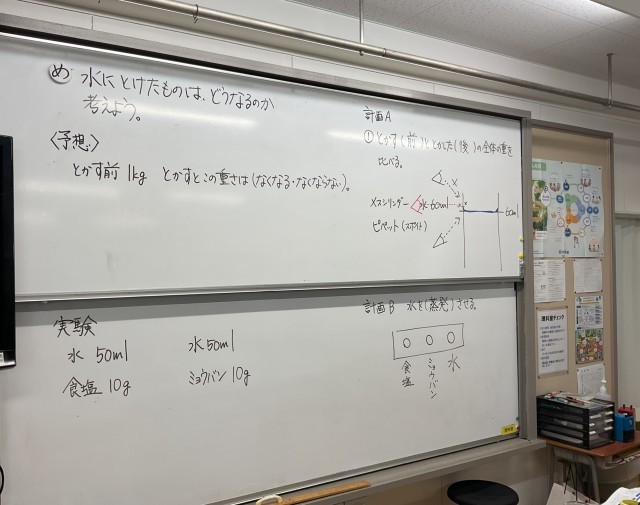 め 水にとけたものは、どうなるのか
考えよう。
〈予想〉
とかす前 1kg とかすとこの重さは(なくなる・なくならない)。
計画A
① とかす(前)ととかした(後)の全体の重さを
比べる。
メスシリンダー 水 50ml
ピペット(スポイト)
実験
水 50ml 水 50ml
食塩 10g ミョウバン 10g
計画B 水を(蒸発)させる。
食塩 ミョウバン 水
理科室チェック